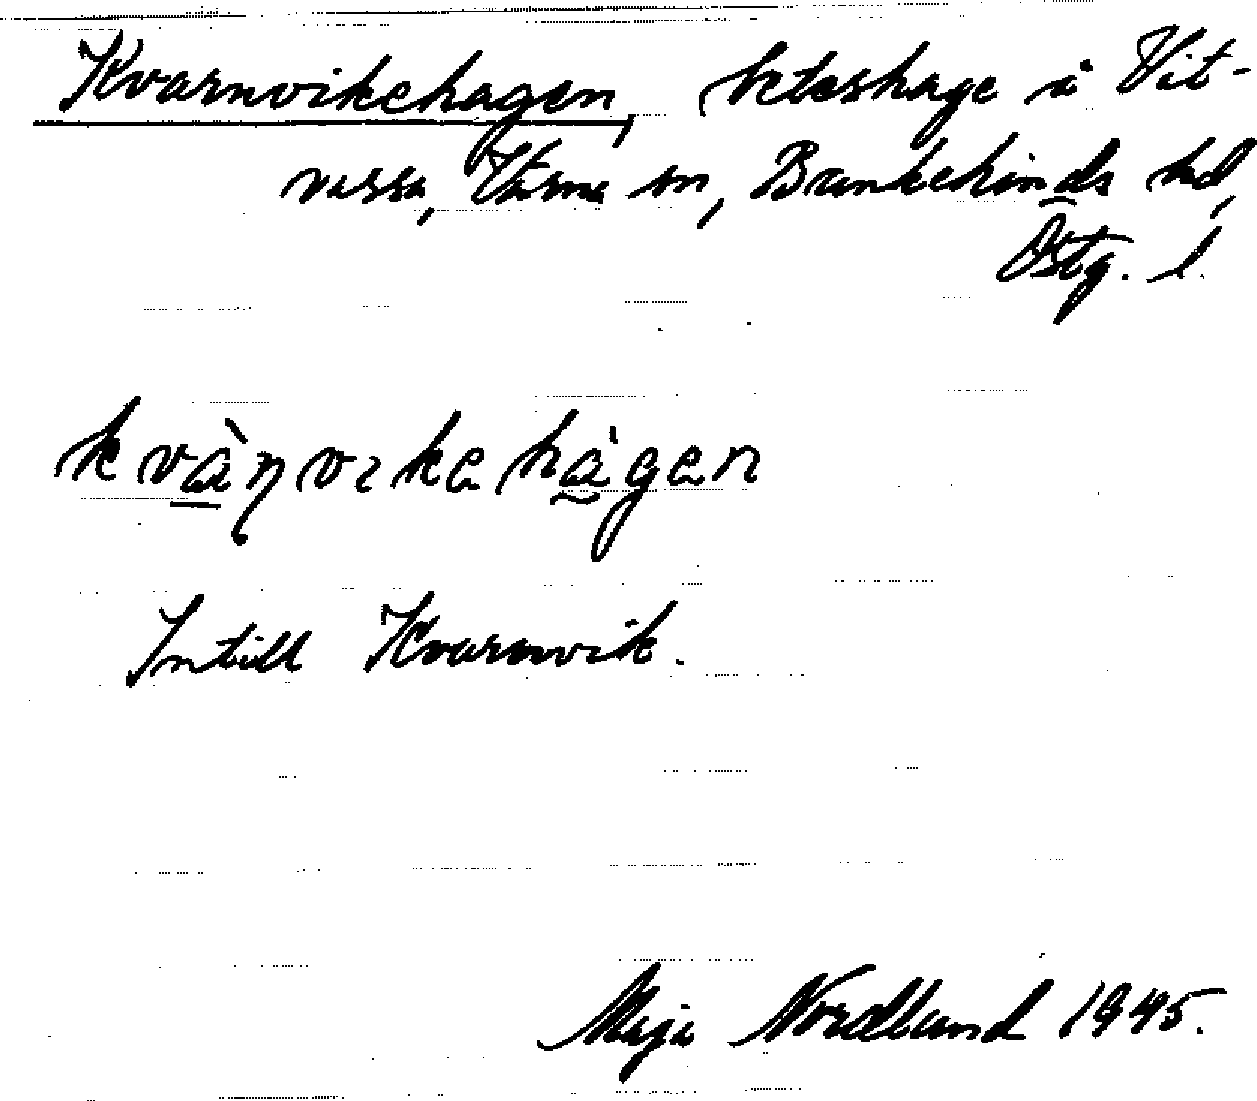 Kvarnvikehagen, beteshage i Vit-
vassa, Värna sn, Bankekinds hd,
Östg. l.
kvànvɩkehàgen
Intill Kvarnvik.
Maja Nordlund 1945.